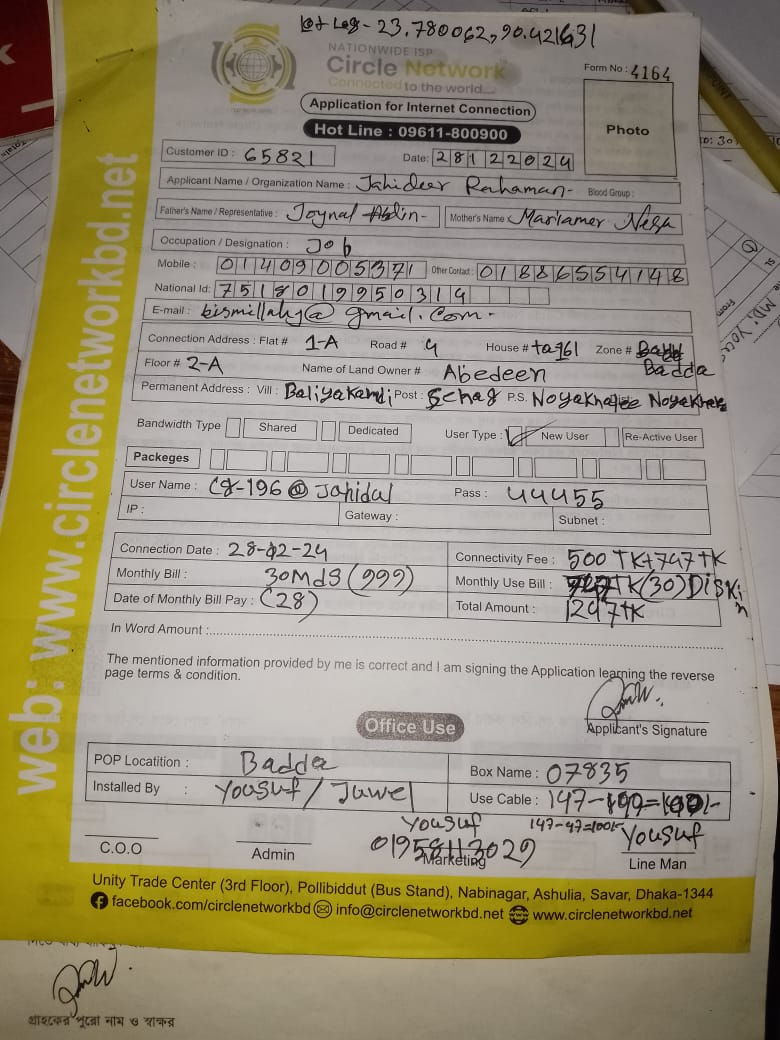 Lat Log - 23.780062,90.421631
NATIONWIDE ISP
Circle Network
Connected to the world......
Form No : 4164
Application for Internet Connection
Hot Line : 09611-800900
Photo
Customer ID : 65821 Date: 28122024
Applicant Name / Organization Name : Jahideer Rahaman- Blood Group :
Father's Name / Representative : Joynal Abdin- Mother's Name Mariamer Nesa
Occupation / Designation : Job
Mobile : 01409005371 Other Contact : 01886554148
National Id: 7518019950314
E-mail : bismillahy@gmail.com-
Connection Address : Flat # 1-A Road # 9 House # ta961 Zone # Badda
Floor # 2-A Name of Land Owner # Abedeen
Permanent Address : Vill : Baliyakandi Post : P.S.
Bandwidth Type Shared Dedicated User Type : New User Re-Active User
Packeges
User Name : Cg-196@Jahidal Pass : 44455
IP : Gateway : Subnet :
Connection Date : 28-12-24 Connectivity Fee : 500 TK+747 TK
Monthly Bill : 30MdS (999) Monthly Use Bill : TK(30)
Date of Monthly Bill Pay : (28) Total Amount : 1247TK
In Word Amount :
The mentioned information provided by me is correct and I am signing the Application learning the reverse
page terms & condition.
Applicant's Signature
Office Use
POP Locatition : Badda Box Name : 07835
Installed By : Yousuf / Juwel Use Cable : 147-
147-47=100/-
Yousuf Yousuf
01958113029
C.O.O Admin Marketing Line Man
Unity Trade Center (3rd Floor), Pollibiddut (Bus Stand), Nabinagar, Ashulia, Savar, Dhaka-1344
facebook.com/circlenetworkbd info@circlenetworkbd.net www.circlenetworkbd.net
web: www.circlenetworkbd.net
গ্রাহকের পুরো নাম ও স্বাক্ষর